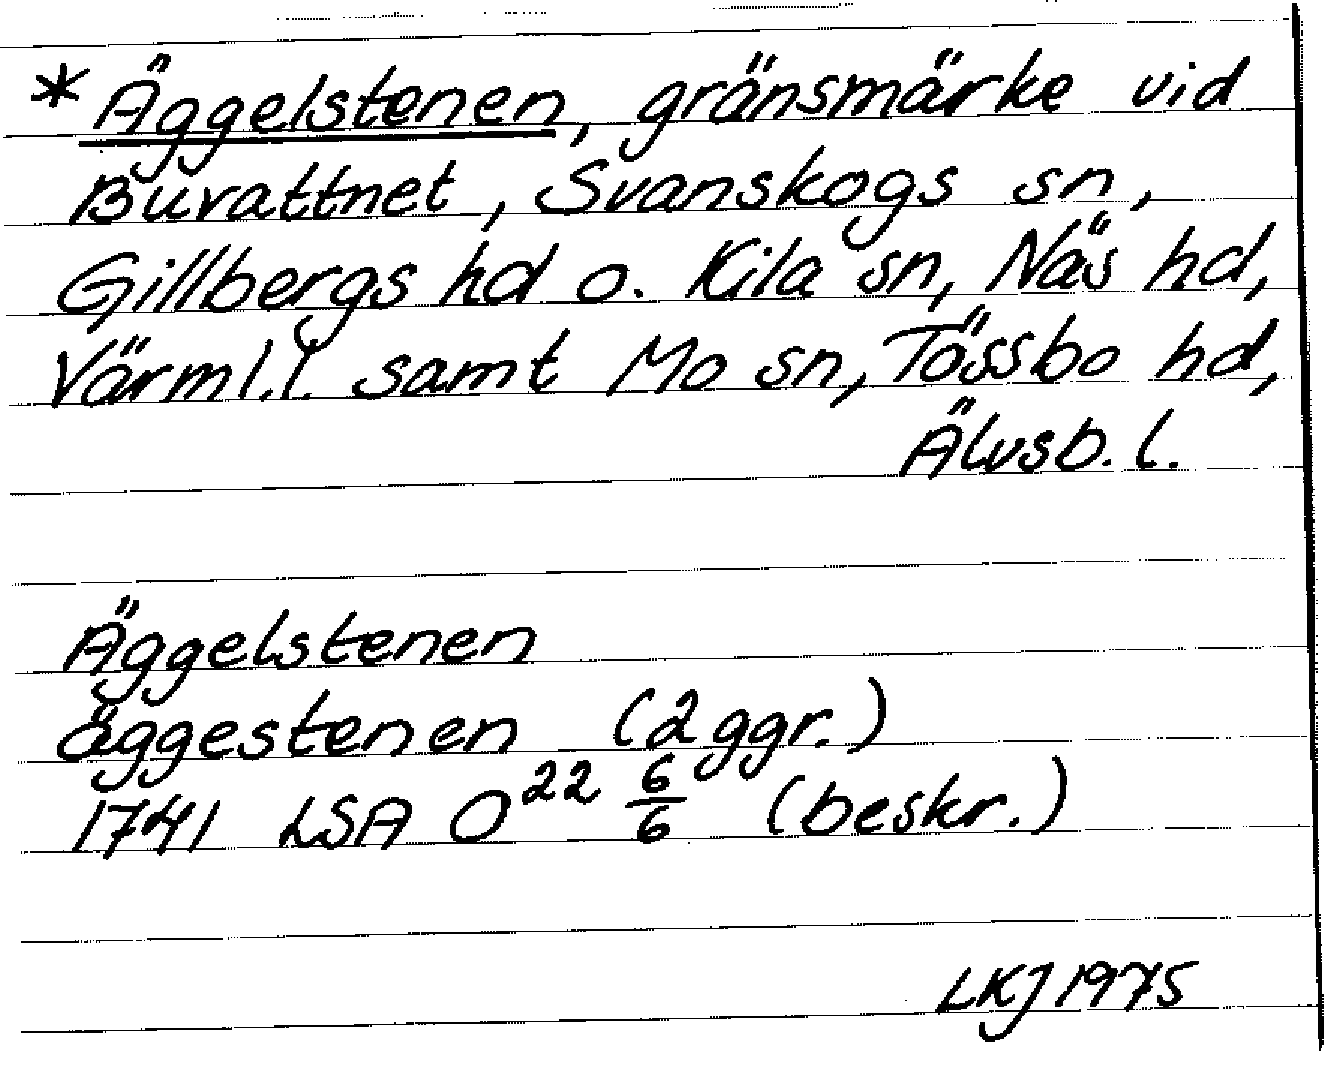 * Äggelstenen, gränsmärke vid
Buvattnet, Svanskogs sn,
Gillbergs hd o. Kila sn, Näs hd,
Värml.l. samt Mo sn, Tössbo hd,
Älvsb.l.
Äggelstenen
äggestenen (2 ggr.)
1741 LSA O²² 6/6 (beskr.)
LKJ 1975